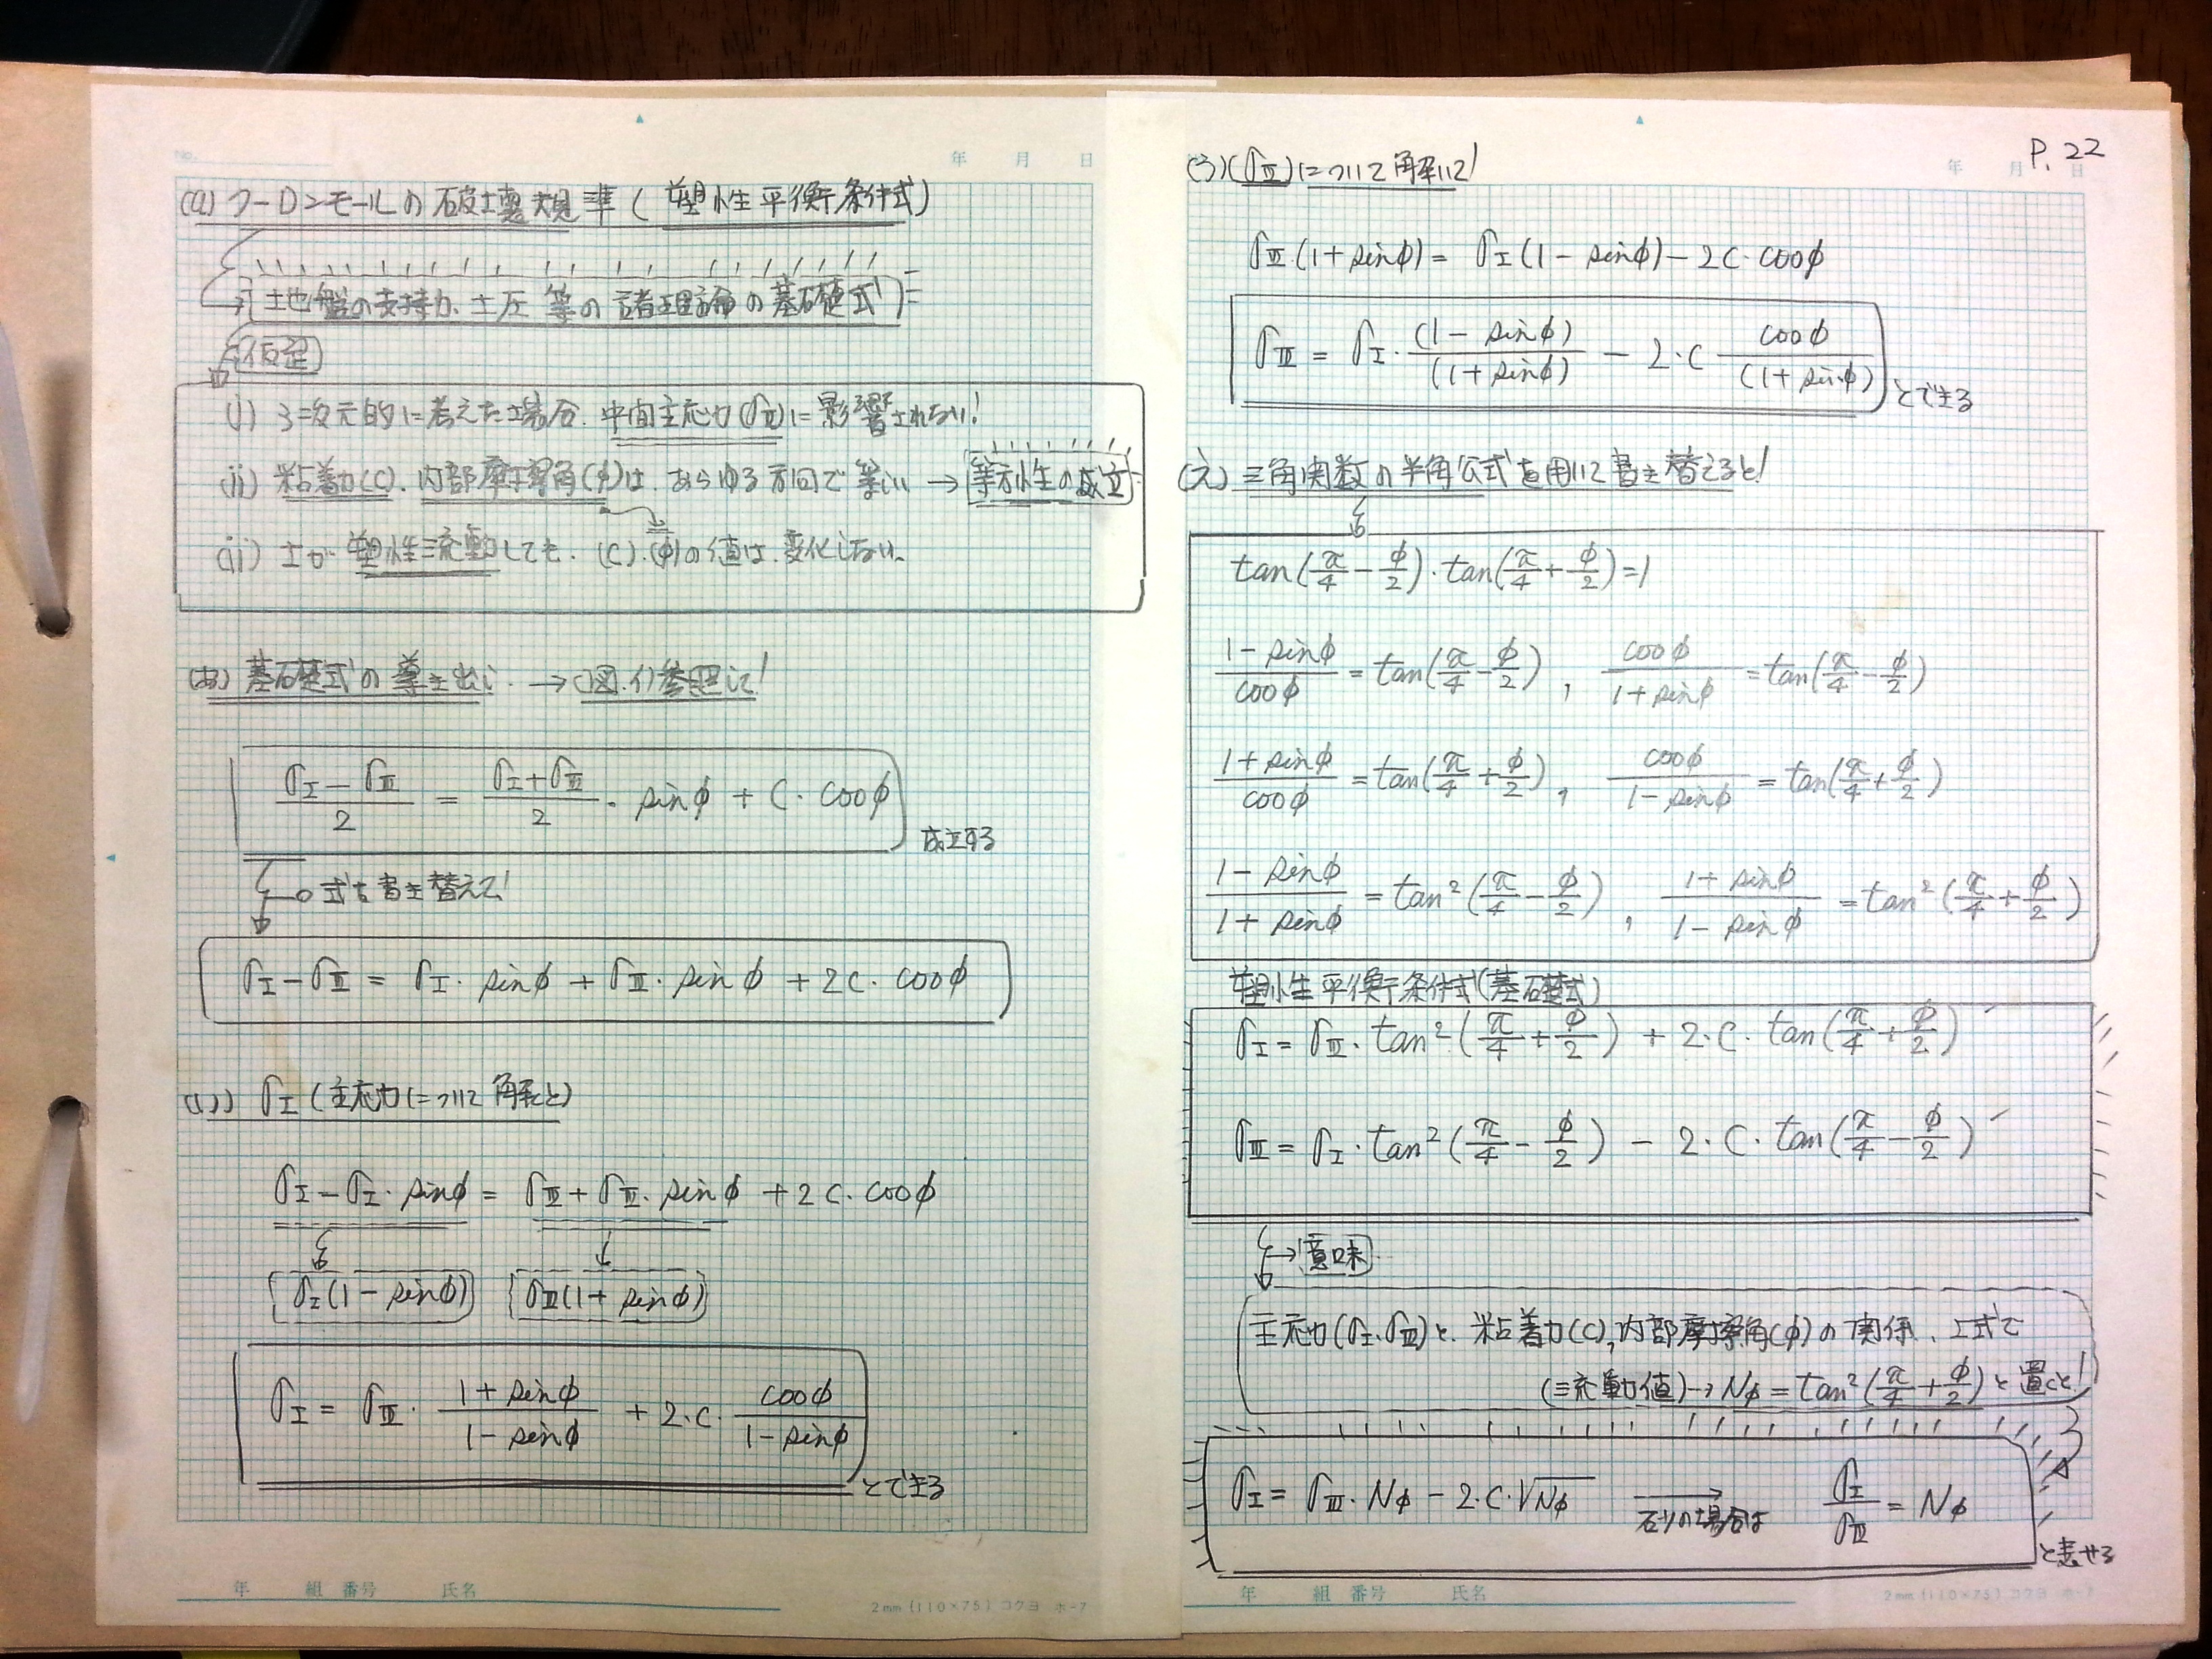 No. 年 月 日
(a) クーロンモールの破壊規準 (塑性平衡条件式)
→ 地盤の支持力、土圧 等の諸理論の基礎式
仮定
(i) 3次元的に考えた場合、中間主応力(σⅡ)に影響されない!
(ii) 粘着力(C)、内部摩擦角(φ)は、あらゆる方向で等しい → 等方性の成立
(iii) 土が塑性流動しても、(C)、(φ)の値は、変化しない。
(あ) 基礎式の導き出し → (図.イ)参照して!
(σⅠ - σⅢ)/2 = (σⅠ + σⅢ)/2 · sinφ + C · cosφ
成立する
式を書き替えて!
σⅠ - σⅢ = σⅠ · sinφ + σⅢ · sinφ + 2C · cosφ
(い) σⅠ (主応力について解くと)
σⅠ - σⅠ · sinφ = σⅢ + σⅢ · sinφ + 2C · cosφ
σⅠ(1 - sinφ) σⅢ(1 + sinφ)
σⅠ = σⅢ · (1 + sinφ)/(1 - sinφ) + 2·C · cosφ/(1 - sinφ)
とできる
年 組 番号 氏名
2mm (110×75) コクヨ ホ-7
P. 22
年 月 日
(う) (σⅢ)について解いて!
σⅢ·(1 + sinφ) = σⅠ(1 - sinφ) - 2C · cosφ
σⅢ = σⅠ · (1 - sinφ)/(1 + sinφ) - 2·C cosφ/(1 + sinφ)
とできる
(え) 三角関数の半角公式を用いて書き替えると!
tan(π/4 - φ/2) · tan(π/4 + φ/2) = 1
(1 - sinφ)/cosφ = tan(π/4 - φ/2) , cosφ/(1 + sinφ) = tan(π/4 - φ/2)
(1 + sinφ)/cosφ = tan(π/4 + φ/2) , cosφ/(1 - sinφ) = tan(π/4 + φ/2)
(1 - sinφ)/(1 + sinφ) = tan²(π/4 - φ/2) , (1 + sinφ)/(1 - sinφ) = tan²(π/4 + φ/2)
塑性平衡条件式(基礎式)
σⅠ = σⅢ · tan²(π/4 + φ/2) + 2·C · tan(π/4 + φ/2)
σⅢ = σⅠ · tan²(π/4 - φ/2) - 2·C · tan(π/4 - φ/2)
→ 意味
主応力(σⅠ、σⅢ)と、粘着力(C)、内部摩擦角(φ)の関係、上式で
(流動値) → Nφ = tan²(π/4 + φ/2) と置くと!
σⅠ = σⅢ · Nφ - 2·C·√Nφ → 砂の場合は σⅠ/σⅢ = Nφ
と表せる
年 組 番号 氏名
2mm (110×75) コクヨ ホ-7